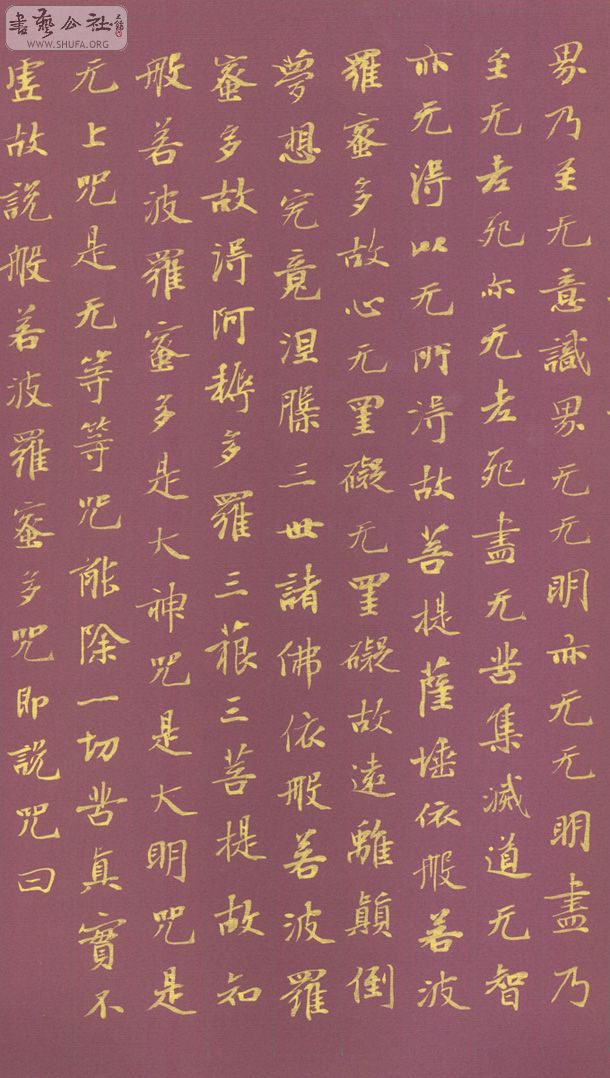 書藝公社
WWW.SHUFA.ORG
界乃至无意識界无无明亦无无明盡乃
至无老死亦无老死盡无苦集滅道无智
亦无得以无所得故菩提薩埵依般若波
羅蜜多故心无罣礙无罣礙故遠離顛倒
夢想究竟涅槃三世諸佛依般若波羅
蜜多故得阿耨多羅三藐三菩提故知
般若波羅蜜多是大神咒是大明咒是
无上咒是无等等咒能除一切苦真實不
虛故說般若波羅蜜多咒即說咒曰